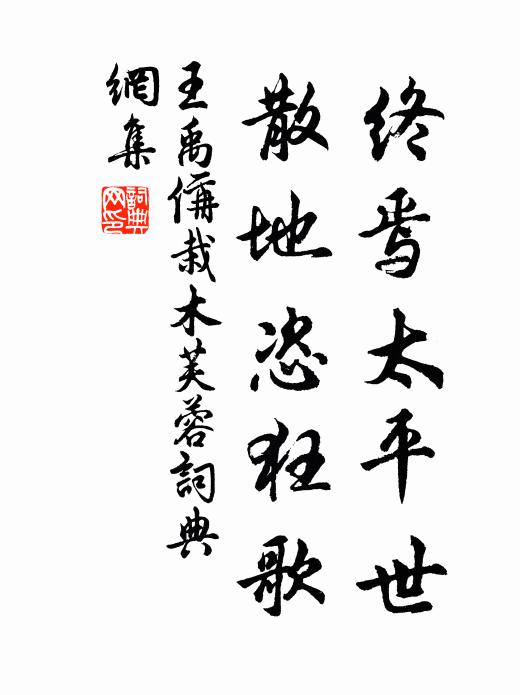 終焉太平世
散地恣狂歌
王禹偁栽木芙蓉詞典
網集
詞典網印